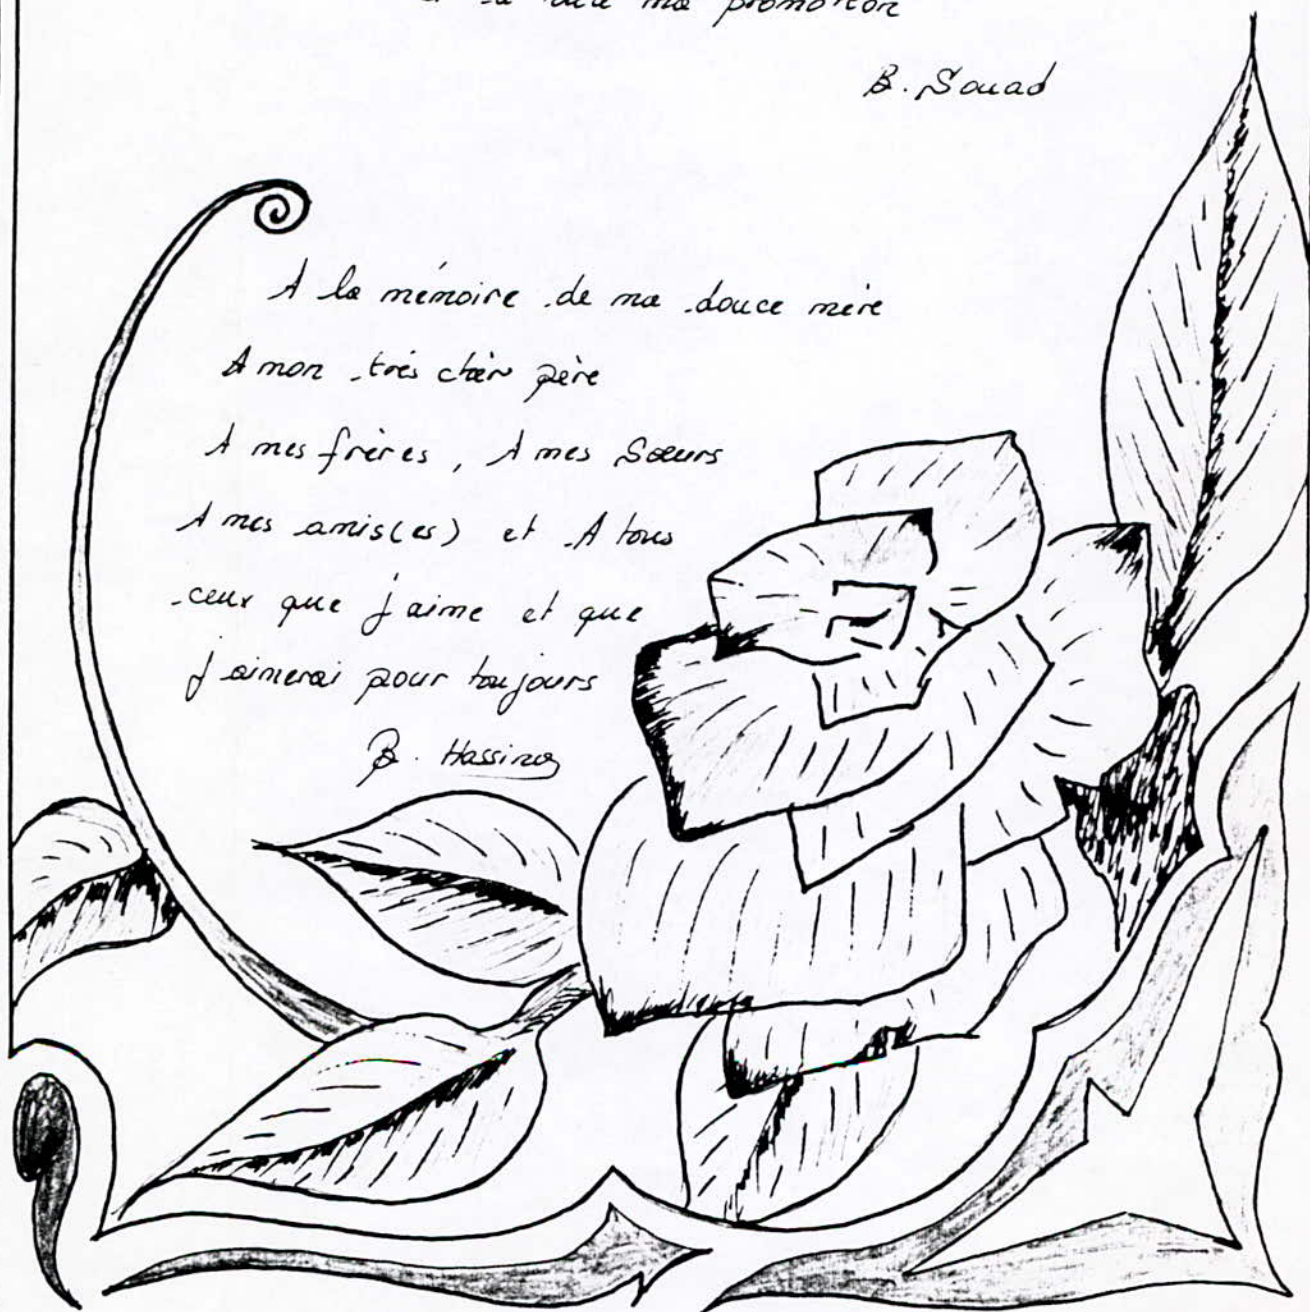 ma promotion
B. Souad
A la mémoire de ma douce mère
A mon très chèr père
A mes frères, A mes Sœurs
A mes amis(es) et A tous
ceux que j'aime et que
J aimerai pour toujours
B. Hassina